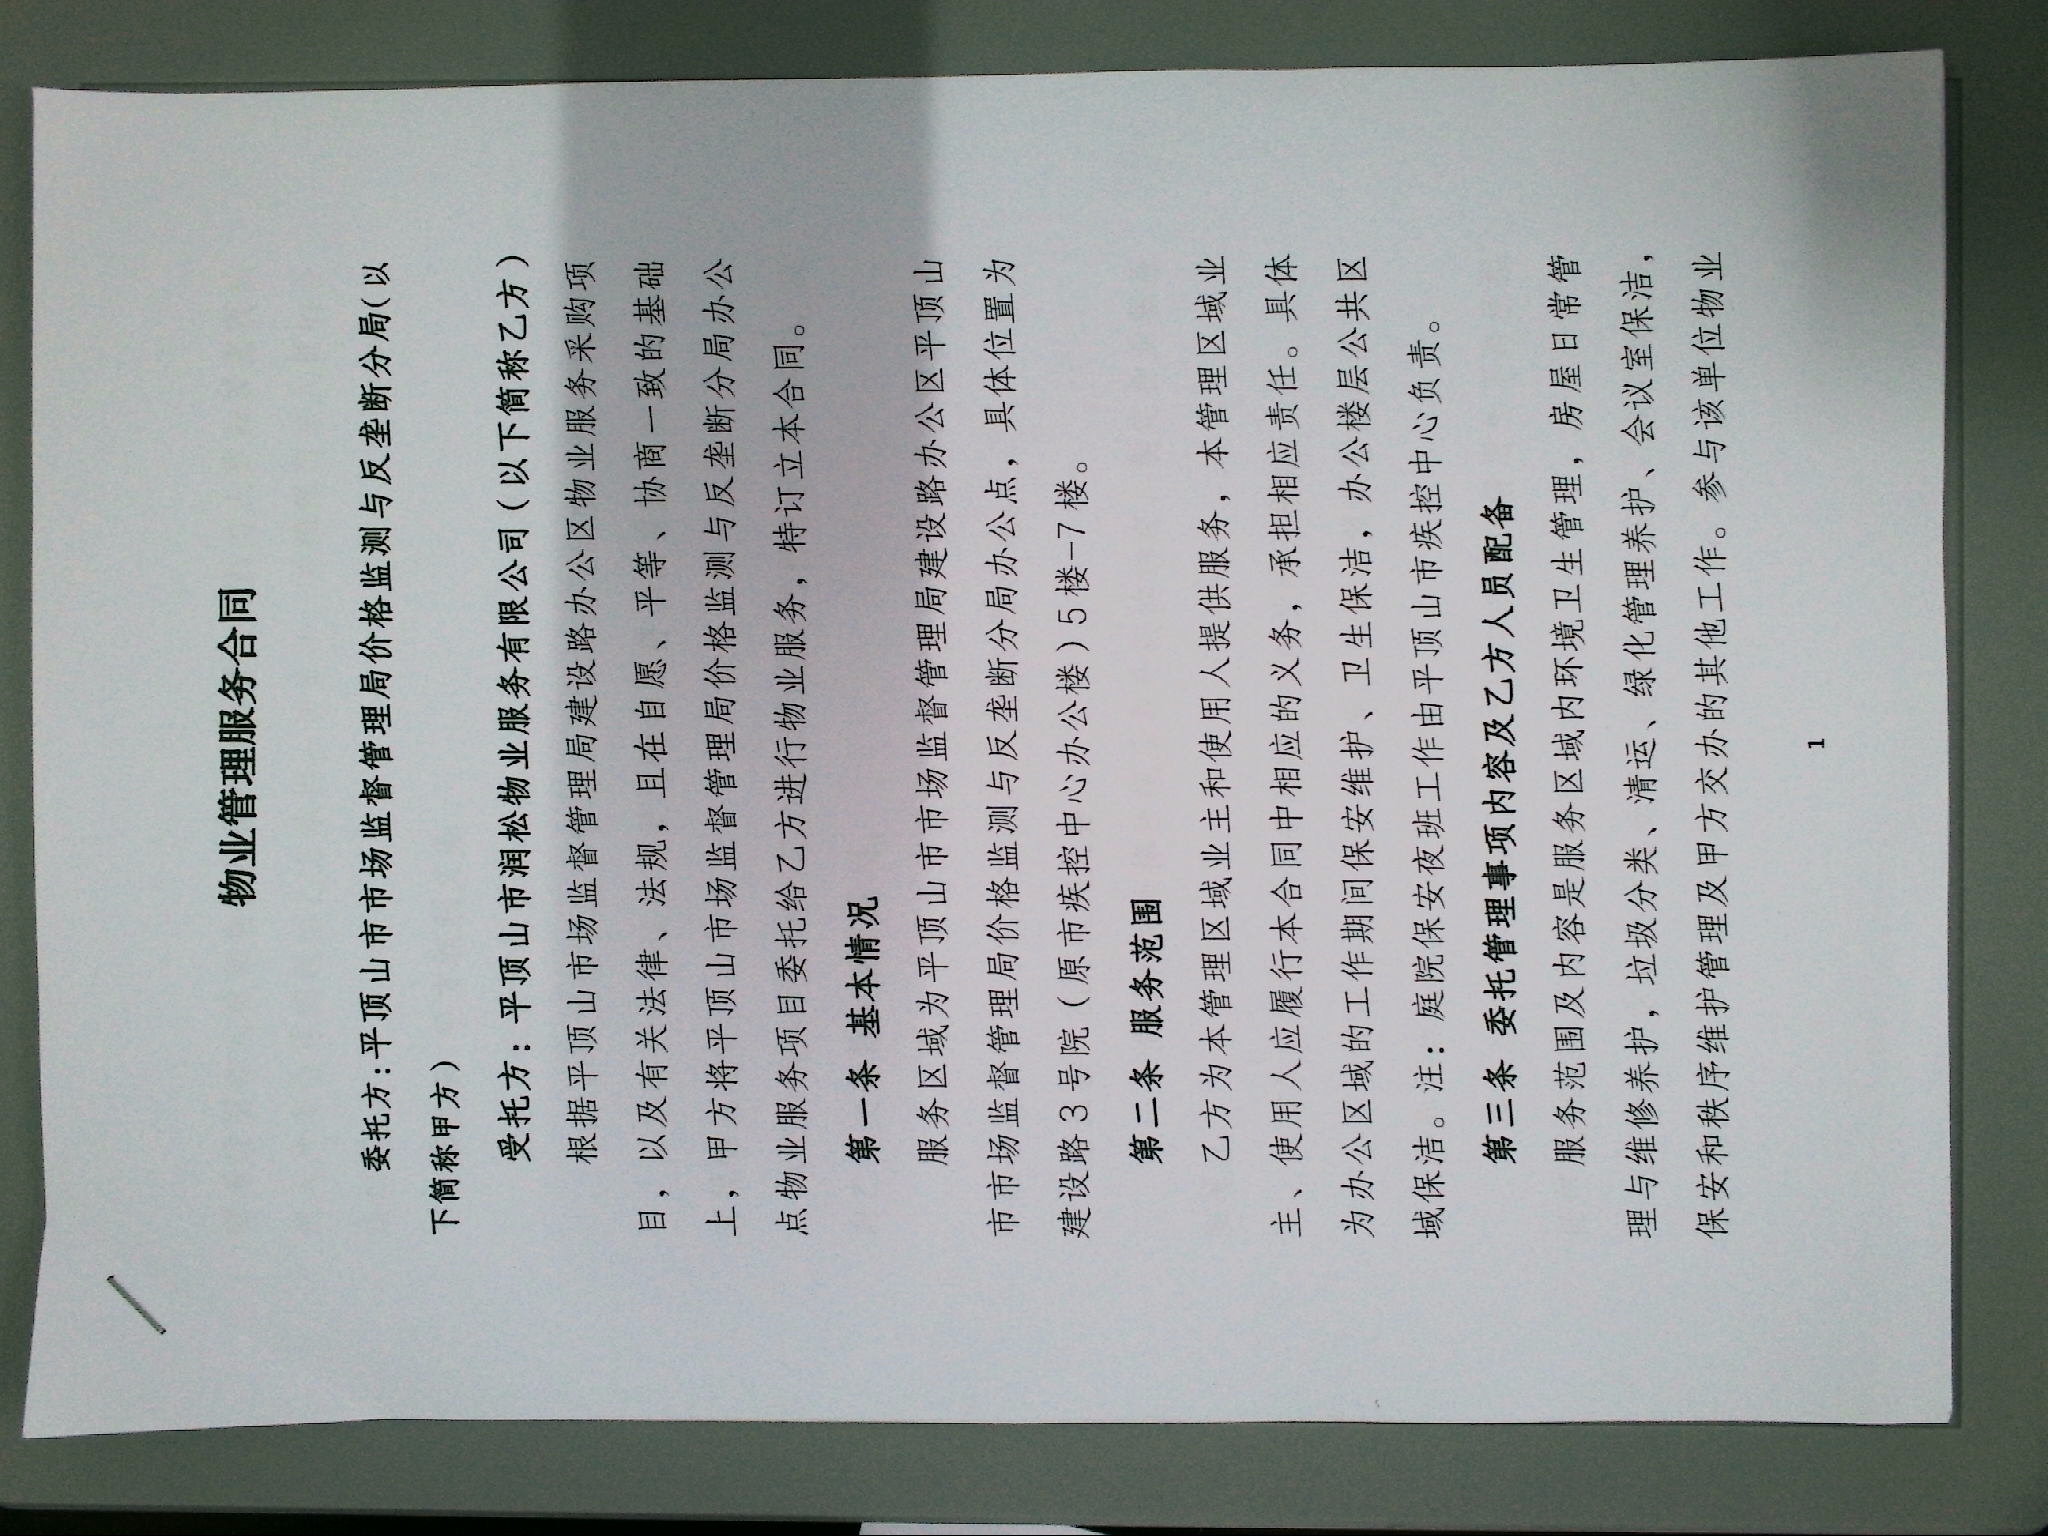 物业管理服务合同
委托方：平顶山市市场监督管理局价格监测与反垄断分局（以
下简称甲方）
受托方：平顶山市润松物业服务有限公司（以下简称乙方）
根据平顶山市场监督管理局建设路办公区物业服务采购项
目，以及有关法律、法规，且在自愿、平等、协商一致的基础
上，甲方将平顶山市场监督管理局价格监测与反垄断分局办公
点物业服务项目委托给乙方进行物业服务，特订立本合同。
第一条 基本情况
服务区域为平顶山市市场监督管理局建设路办公区平顶山
市市场监督管理局价格监测与反垄断分局办公点，具体位置为
建设路3号院（原市疾控中心办公楼）5楼-7楼。
第二条 服务范围
乙方为本管理区域业主和使用人提供服务，本管理区域业
主、使用人应履行本合同中相应的义务，承担相应责任。具体
为办公区域的工作期间保安维护、卫生保洁，办公楼层公共区
域保洁。注：庭院保安夜班工作由平顶山市疾控中心负责。
第三条 委托管理事项内容及乙方人员配备
服务范围及内容是服务区域内环境卫生管理，房屋日常管
理与维修养护，垃圾分类、清运、绿化管理养护、会议室保洁，
保安和秩序维护管理及甲方交办的其他工作。参与该单位物业
1